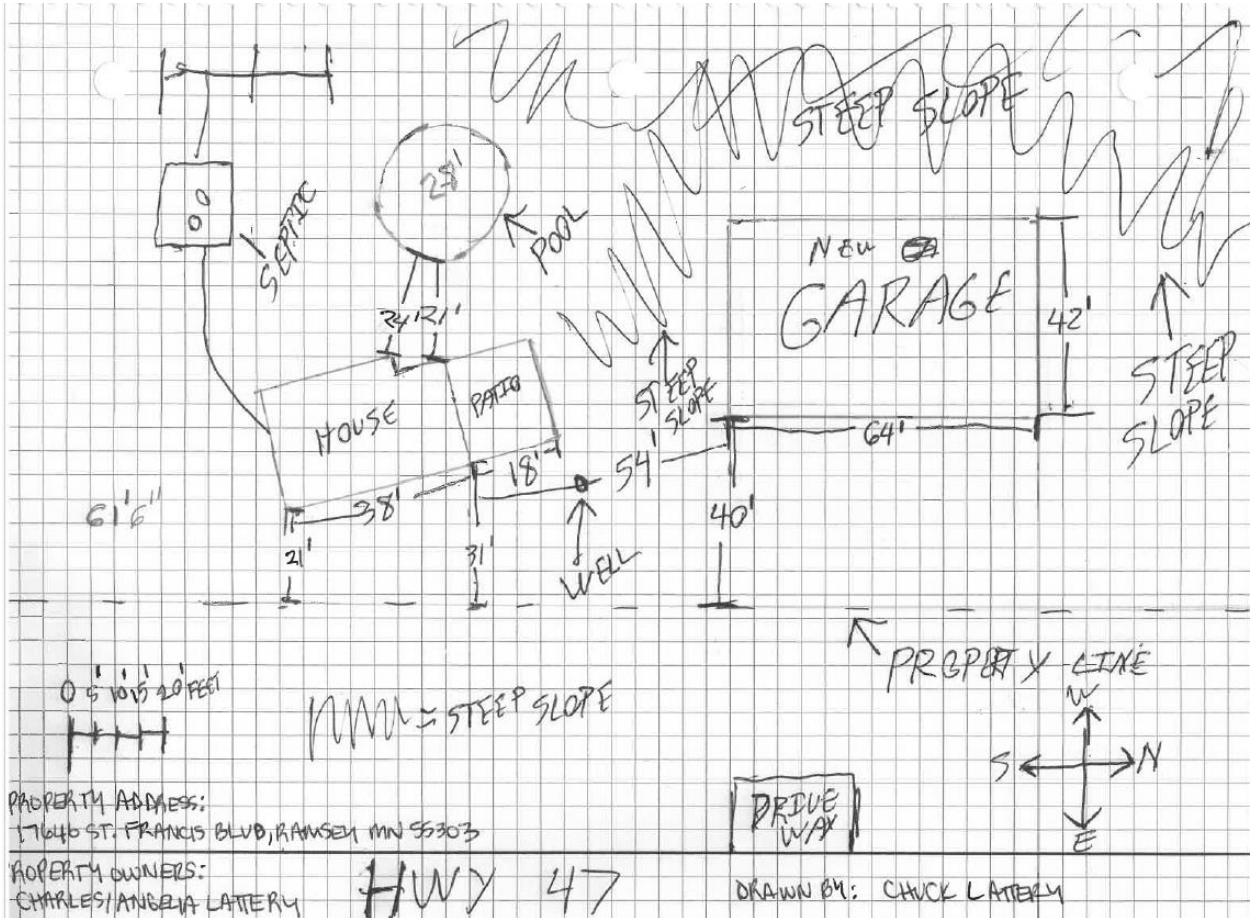 STEEP SLOPE
28'
POOL
SEPTIC
NEW
GARAGE
42'
24' 21'
STEEP
SLOPE
STEEP
SLOPE
HOUSE
PATIO
64'
18'
54'
38'
40'
61'6"
21'
31'
WELL
PROPERTY LINE
0 5' 10' 15' 20' FEET
= STEEP SLOPE
W
S
N
E
DRIVE
WAY
PROPERTY ADDRESS:
17646 ST. FRANCIS BLVD, RAMSEY MN 55303
ROPERTY OWNERS:
CHARLES/ANGELIA LATTERY
HWY 47
DRAWN BY: CHUCK LATTERY